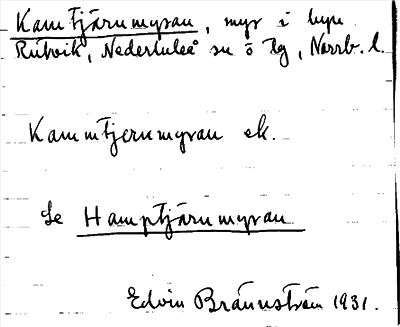 Kamtjärnmyran, myr i byn
Rutvik, Nederluleå sn ö tg, Norrb. l.
Kammtjernmyran ek.
Se Hamptjärnmyran
Edvin Brännström 1931.